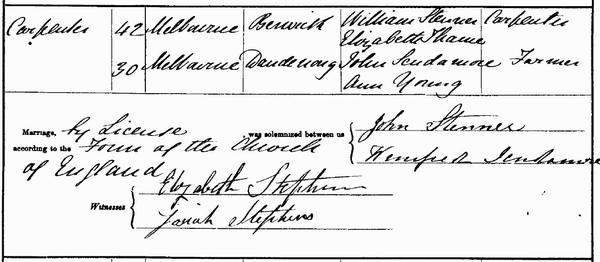 Carpenter 42 Melbourne Berwick William Stenner Carpenter
Elizabeth Thame
30 Melbourne Dandenong John Scudamore Farmer
Ann Young
Marriage, by License was solemnized between us John Stenner
according to the Form of the Church
of England
Elizabeth Stephens
Witnesses
Stephens